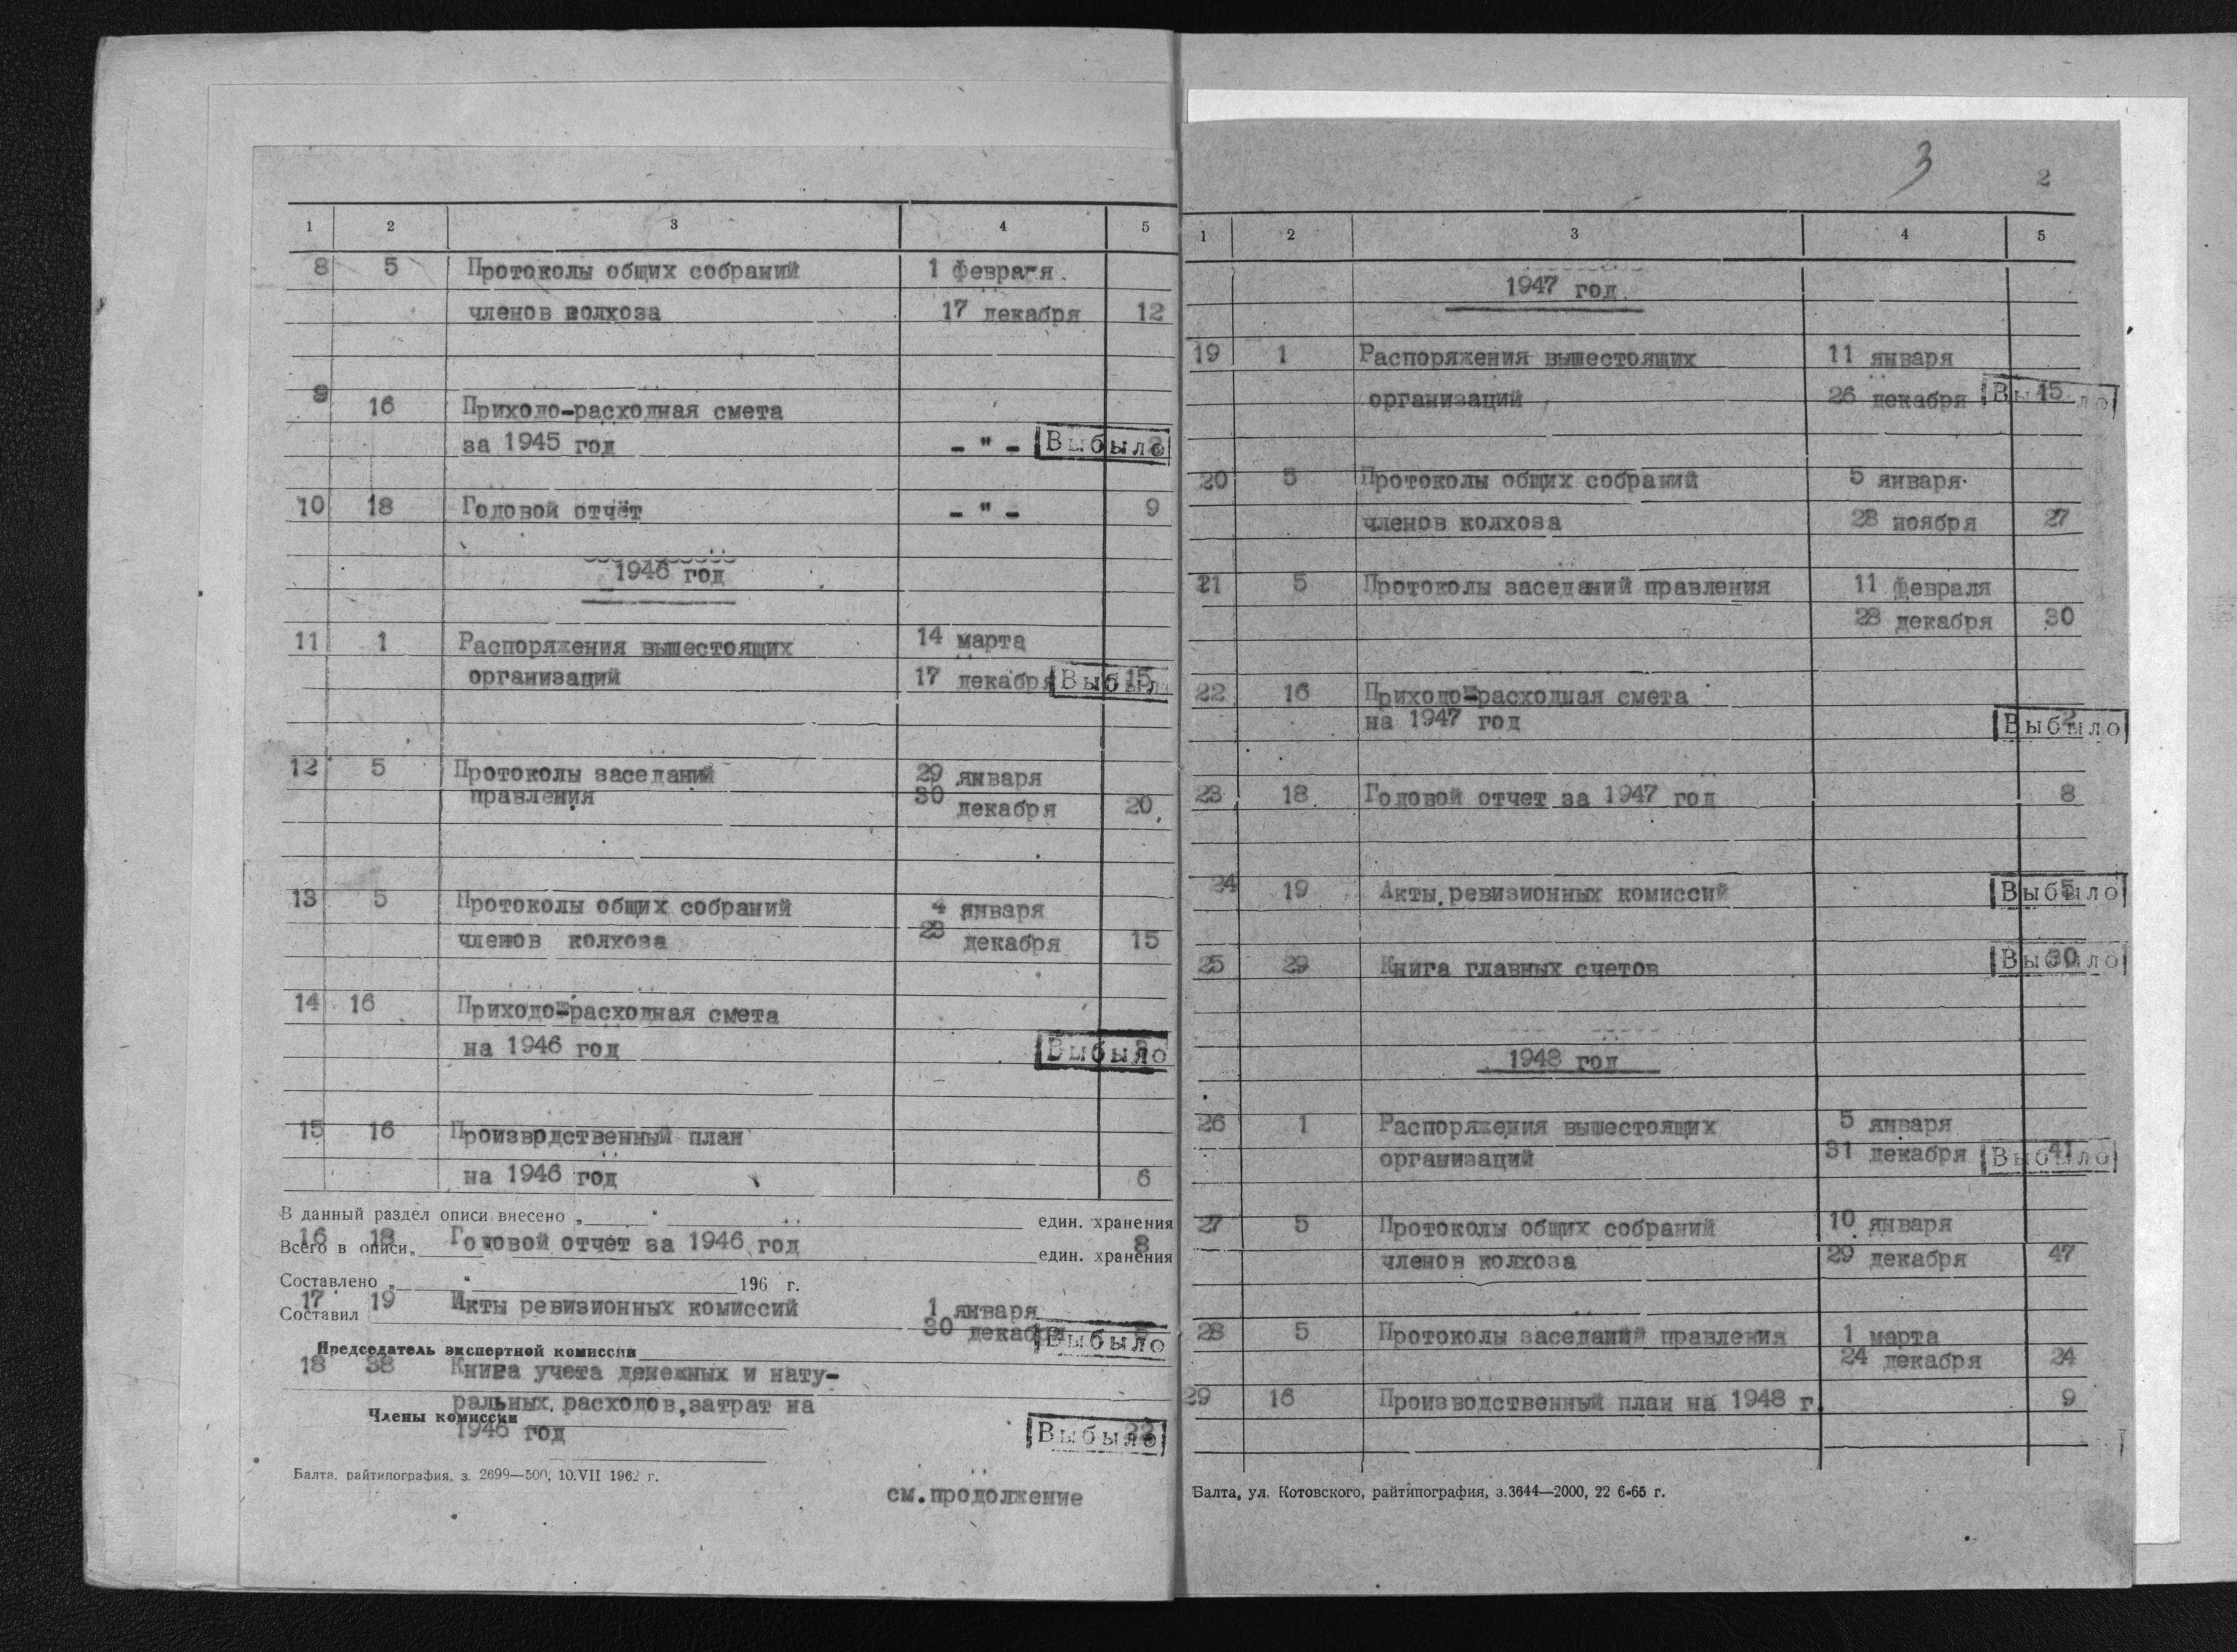 1 2 3 4 5
8 5 Протоколы общих собраний 1 февраля
членов колхоза 17 декабря 12
9
16 Приходо-расходная смета
за 1945 год - " - Выбыло
10 18 Годовой отчёт - " - 9
1946 год
11 1 Распоряжения вышестоящих 14 марта
организаций 17 декабря 15 Выбыло
12 5 Протоколы заседаний 29 января
правления 30 декабря 20
13 5 Протоколы общих собраний 4 января
членов колхоза 23 декабря 15
14 16 Приходо-расходная смета
на 1946 год Выбыло
15 16 Производственный план
на 1946 год 6
В данный раздел описи внесено „ " един. хранения
16 18 Годовой отчет за 1946 год 8
Всего в описи „ " един. хранения
Составлено „ " 196 г.
17 19 Акты ревизионных комиссий 1 января
Составил
30 декабря Выбыло
Председатель экспертной комиссии
18 38 Книга учета денежных и нату-
ральных расходов, затрат на
Члены комиссии
1946 год Выбыло
Балта, райтипография, з. 2699—500, 10.VII 1962 г.
см.продолжение
3 2
1 2 3 4 5
1947 год
19 1 Распоряжения вышестоящих 11 января
организаций 26 декабря 15 Выбыло
20 5 Протоколы общих собраний 5 января
членов колхоза 28 ноября 27
21 5 Протоколы заседаний правления 11 февраля
28 декабря 30
22 16 Приходо-расходная смета
на 1947 год 2 Выбыло
23 18 Годовой отчет за 1947 год 8
24 19 Акты ревизионных комиссий 5 Выбыло
25 29 Книга главных счетов 30 Выбыло
1948 год
26 1 Распоряжения вышестоящих 5 января
организаций 31 декабря 41 Выбыло
27 5 Протоколы общих собраний 10 января
членов колхоза 29 декабря 47
28 5 Протоколы заседаний правления 1 марта
24 декабря 24
29 16 Производственный план на 1948 г. 9
Балта, ул. Котовского, райтипография, з.3644—2000, 22 6-65 г.